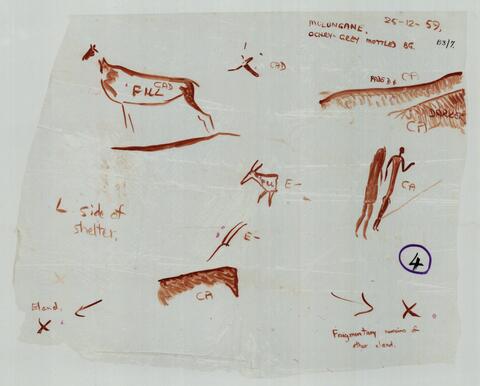 MOLUNGANE. 25-12-59.
OCHRY-GREY MOTTLED BG. B3/7.
CAD
CAD
FILL
CA
DARKER
CA
FILL
E-
CA
L side of
shelter.
E-
4
CA
Eland.
X
X
Fragmentary remains of
other eland.